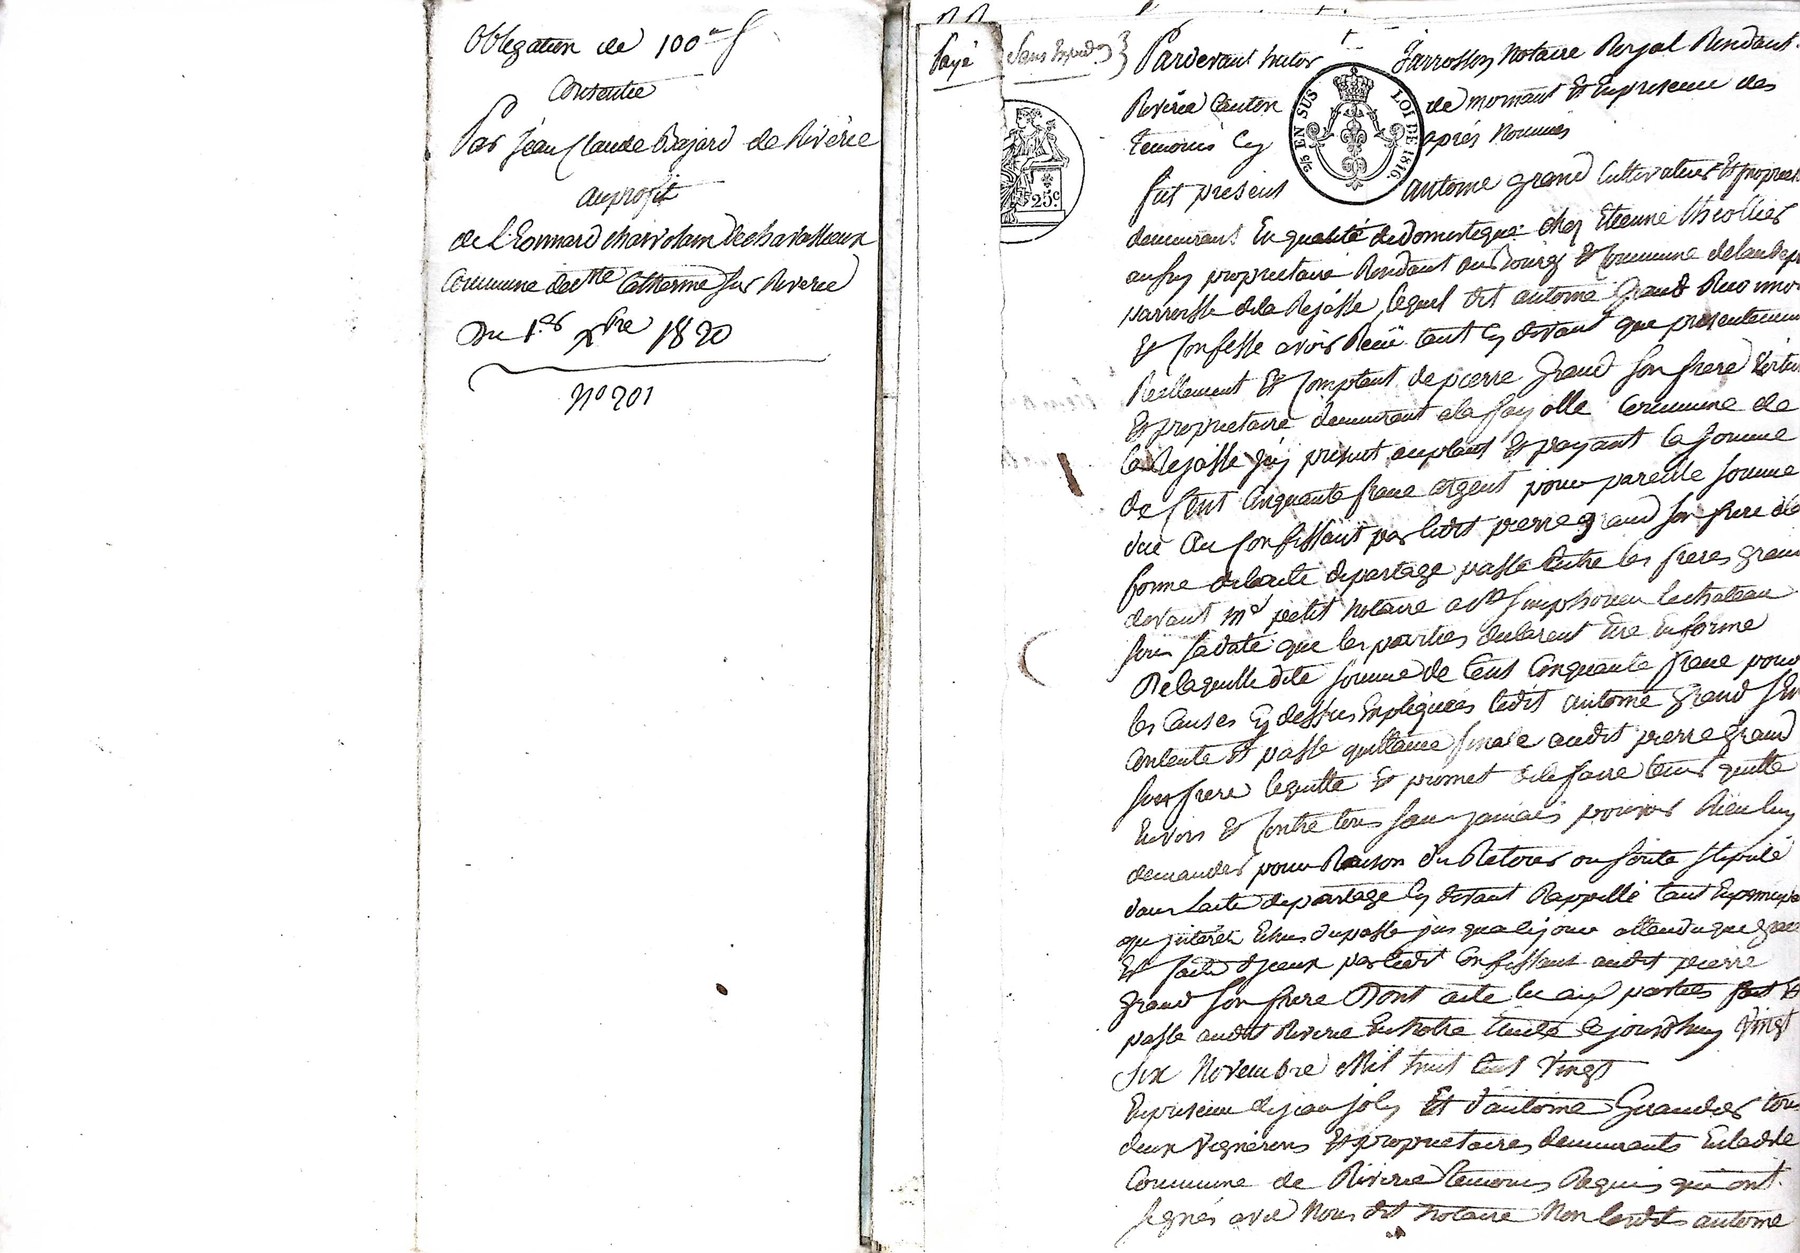 Obligation de 100 f
Consentie
Par Jean Claude Bajard de Riverie
au profit
de Léonnard charvolain de chavassieux
Commune de Ste Catherine sur Riverie
Du 1er Xbre 1820
No 201
Payé
Sans Expedon
Pardevant Jarrosson Notaire Royal Résidant
Riverie Canton de mornant Et En presence des
témoins Cy après Nommés
2/5 EN SUS LOI DE 1816
25 c.
fut présent antoine grand Cultivateur Et propriet
demeurant En qualité de Domestique chez Etienne thiollier
proprietaire Résidant au Bourg Et Commune de
parroisse de la Rajasse lequel dit antoine Grand
Et Confesse avoir Recu tant Cy devant que presentement
Réellement Et Comptant de pierre Grand son frere
Et proprietaire demeurant a la fayolle Commune de
la Rajasse Icy présent acceptant Et payant la Somme
de Cent Cinquante franc argent pour pareille Somme
due au Confessant par ledit pierre grand son frere
forme de l'acte de partage passé Entre les freres gran
devant me petit Notaire a st simphorien le chateau
sous sa date que les parties declarent Etre En forme
De laquelle dite somme de Cent Cinquante franc pour
les Causes Cy dessus Expliquées ledit antoine Grand sen
Contente Et passe quittance finale audit pierre grand
son frere le quitte Et promet de le faire tenir quitte
Envers Et Contre tous sans jamais pouvoir Rien luy
demander pour Raison du Retour ou soute stipulé
dans l'acte de partage Cy devant Rappellé tant En principa
qu'interêt Echus du passé jus qua ce jour attendu que
Et d'iceux par ledit Confessant audit pierre
Grand son frere Dont acte lu aux parties fait Et
passé audit Riverie En Notre Etude le jourdhuy vingt
six Novembre Mil huit Cent Vingt
En presence de jean joly Et d'antoine Grandes tous
deux Vignerons Et proprietaires demeurants En ladite
Commune de Riverie témoins Requis qui ont
signés avec Nous dit Notaire Non ledit antoine